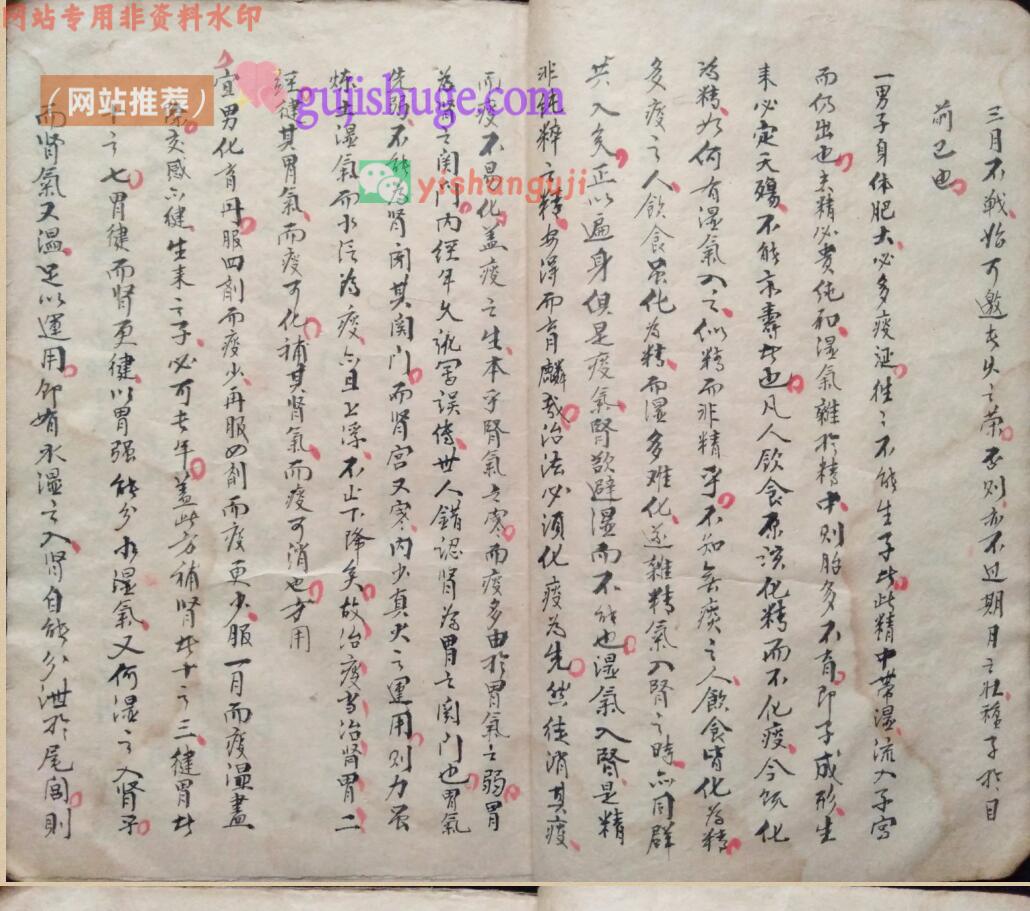 网站专用非资料水印
(网站推荐)
gujishuge.com
yishanguji
三月不戰始可邀吉夫之榮否則亦不过期月之壮種子於目
前已也
一男子身体肥大必多痰涎往之不能生子此精中帶湿流入子宫
而仍出也夫精必贵纯和湿氣雜於精中则胎多不育即子成形生
来必定夭殤不能永壽者也凡人飲食原該化精而不化痰今既化
為精如何有湿氣入之似精而非精乎不知無痰之人飲食皆化為精
多痰之人飲食虽化為精而湿多难化遂雜精氣入腎之時亦同群
共入矣正以遍身俱是痰氣腎欲避湿而不能也湿氣入腎是精
非纯粹之精安得而育麟哉治法必須化痰為先然徒消其痰
而痰不易化盖痰之生本乎腎氣之寒而痰多由於胃氣之弱胃
為腎之関門内經年久訛写误傳世人錯認肾為胃之関門也胃氣
先弱不能為肾闭其関门而肾宫又寒内少真火之運用则力虽
炼土湿氣而水泛為痰亦且上浮不止下降矣故治痰当治肾胃二
經健其胃氣而痰可化補其肾氣而痰可消也方用
宜男化育丹服四劑而痰少再服四劑而痰更少服一月而痰湿盡
除交感亦健生来之子必可长年盖此方補肾者十之三健胃者
十之七胃健而肾更健以胃强能分水湿氣又何湿之入肾乎
而肾氣又温足以運用即有水湿之入肾自能分泄於尾闾则